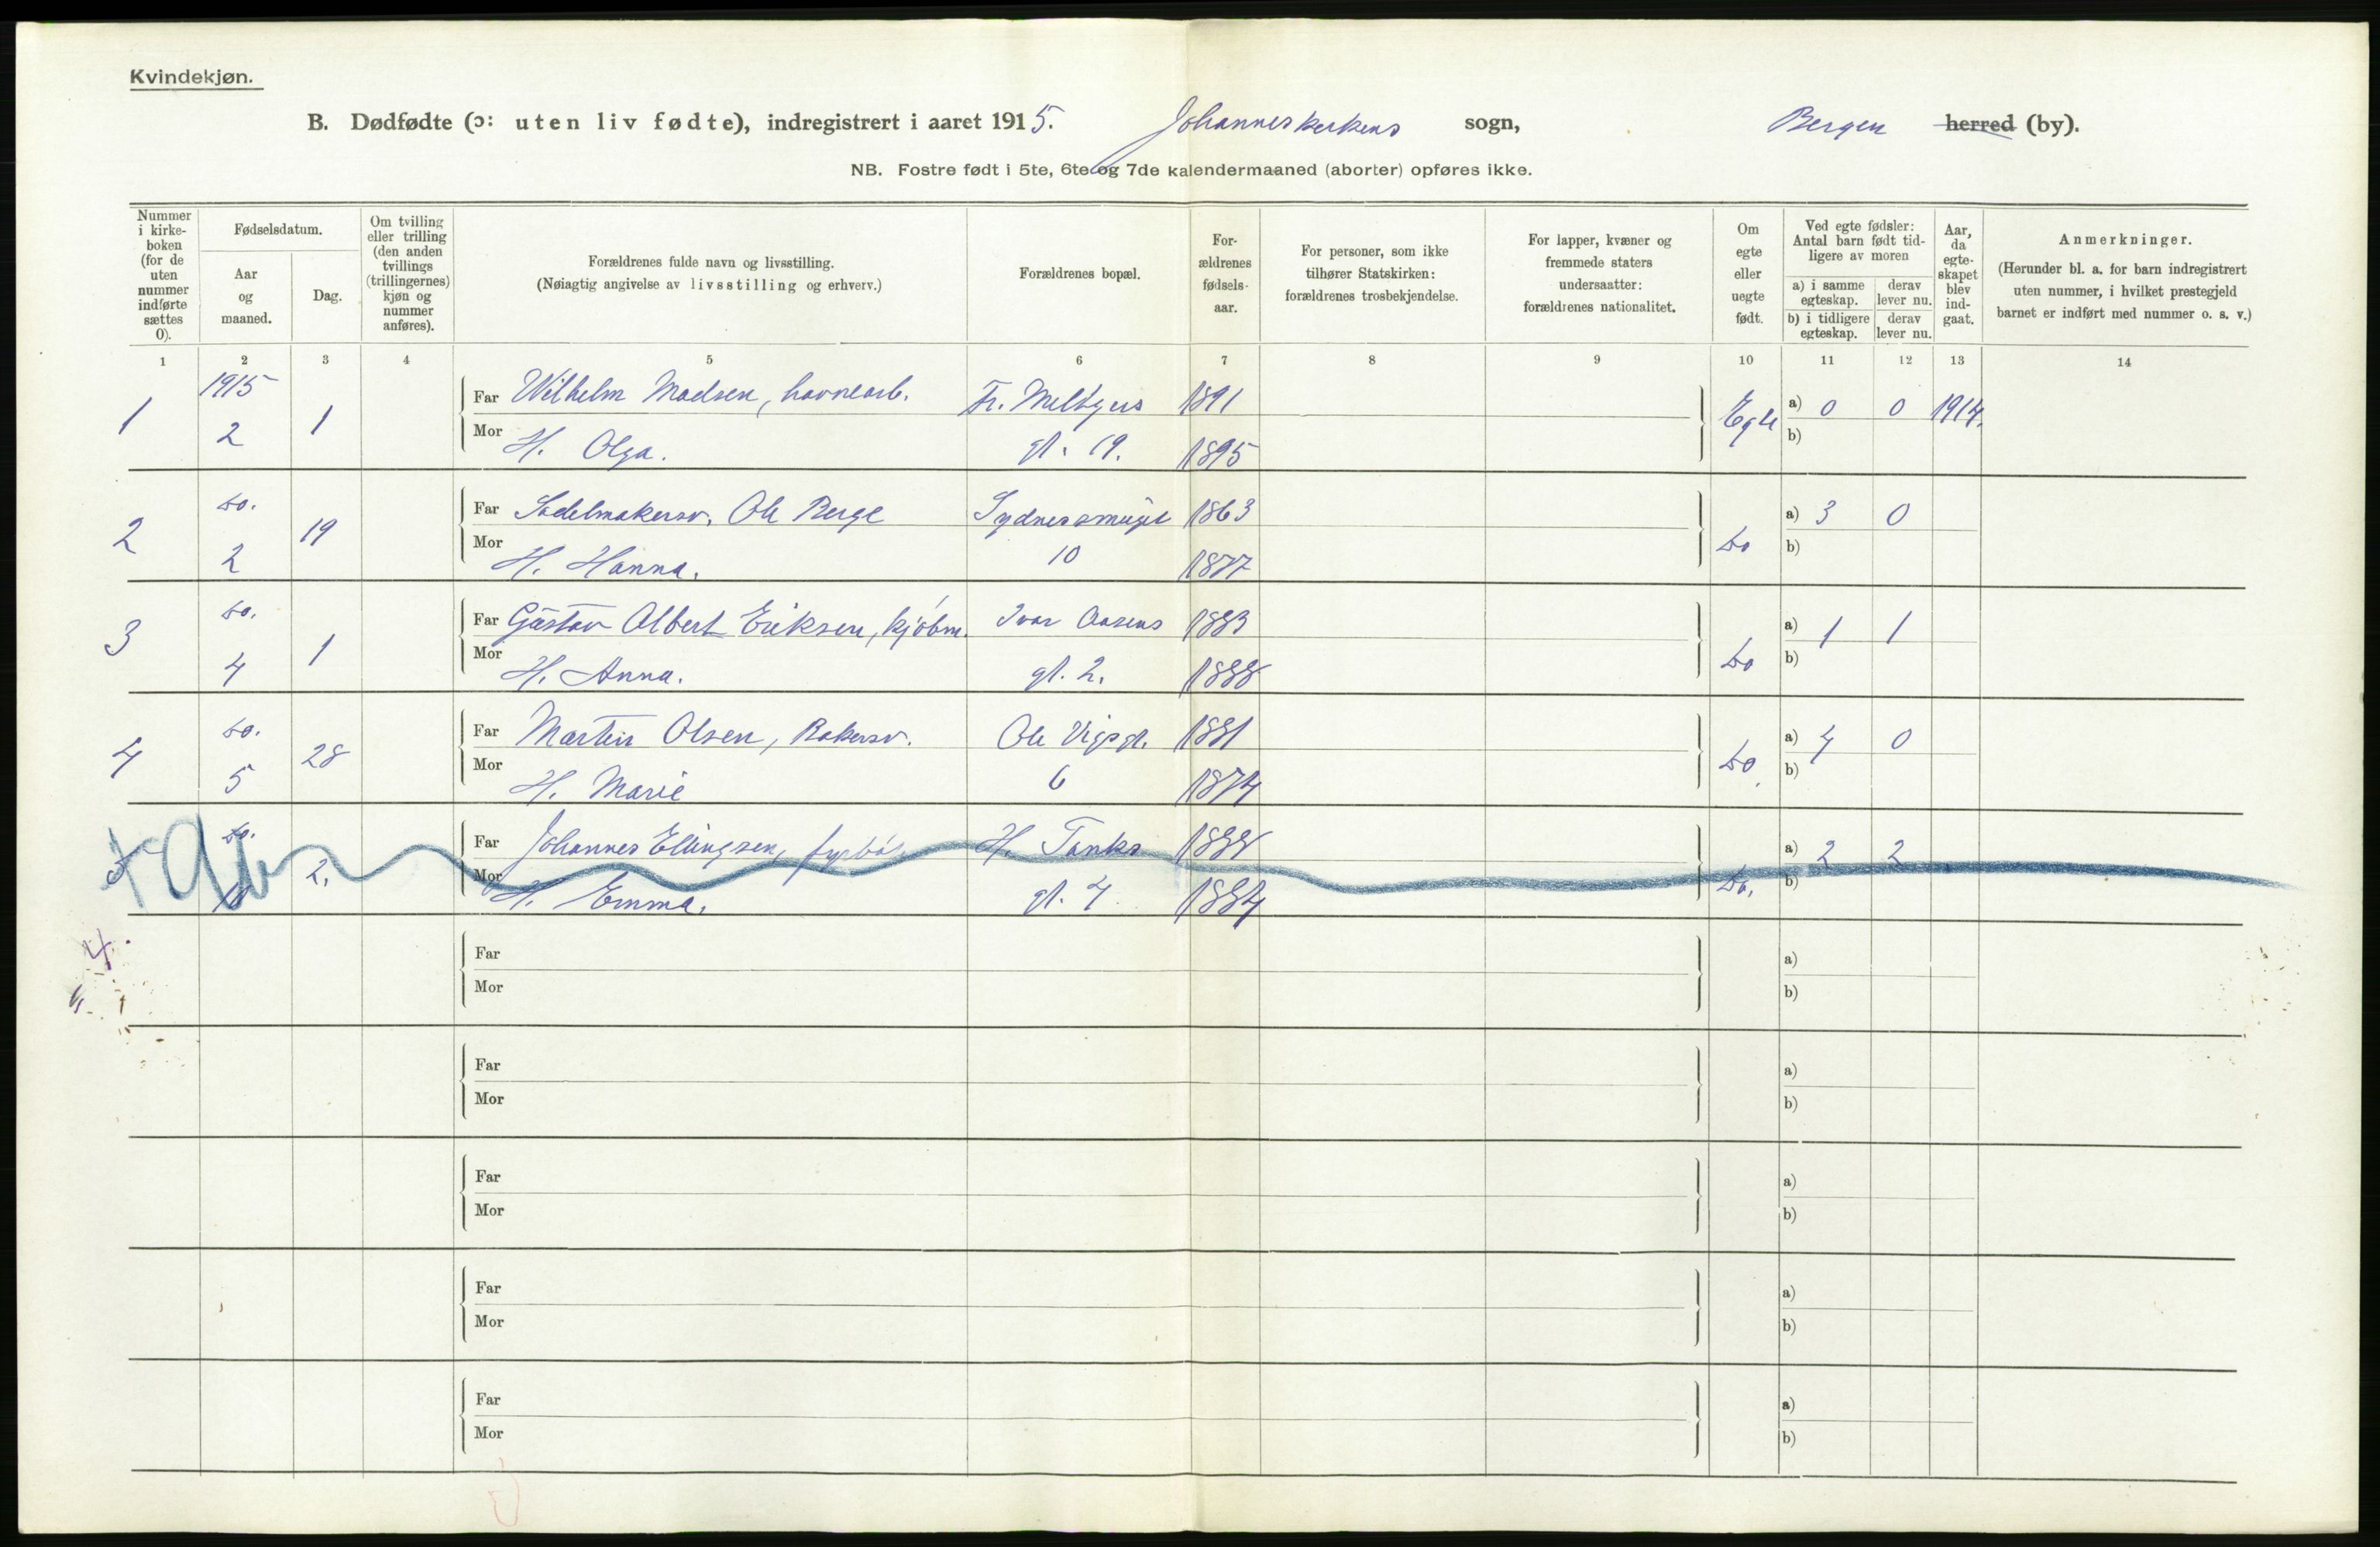 Kvindekjøn.
B. Dødfødte (ɔ: uten liv fødte), indregistrert i aaret 1915. Johanneskerkens sogn, Bergen herred (by).
NB. Fostre født i 5te, 6te og 7de kalendermaaned (aborter) opføres ikke.
Nummer i kirkeboken (for de uten nummer indførte sættes 0).
Fødselsdatum.
Aar og maaned.
Dag.
Om tvilling eller trilling (den anden tvillings (trillingernes) kjøn og nummer anføres).
Forældrenes fulde navn og livsstilling.
(Nøiagtig angivelse av livsstilling og erhverv.)
Forældrenes bopæl.
Forældrenes fødselsaar.
For personer, som ikke tilhører Statskirken: forældrenes trosbekjendelse.
For lapper, kvæner og fremmede staters undersaatter: forældrenes nationalitet.
Om egte eller uegte født.
Ved egte fødsler: Antal barn født tidligere av moren
a) i samme egteskap. derav lever nu.
b) i tidligere egteskap. derav lever nu.
Aar, da egteskapet blev indgaat.
Anmerkninger.
(Herunder bl. a. for barn indregistrert uten nummer, i hvilket prestegjeld barnet er indført med nummer o. s. v.)
1 2 3 4 5 6 7 8 9 10 11 12 13 14
1 1915 2 1 Far Wilhelm Madsen, havnearb. Fr. Meltzers 1891 Egte a) 0 0 1914.
Mor H. Olga. gt. 19. 1895 b)
2 do. 2 19 Far Sadelmakersv. Ole Berge Sydnessmuget 1863 Do a) 3 0
Mor H. Hanna. 10 1877 b)
3 do. 4 1 Far Gustav Albert Eriksen, kjøbm. Ivar Aasens 1883 Do a) 1 1
Mor H. Anna. gt. 2. 1888 b)
4 do. 5 28 Far Martin Olsen, Bakersv. Ole Vigsgt. 1881 Do. a) 4 0
Mor H. Marie 6 1874 b)
5 do. 2. Far Johannes Ellingsen, fyrbøt. H. Tanks 1888 Do. a) 2 2
Mor H. Emma. gt. 4 1884 b)
4.
Far a)
Mor b)
Far a)
Mor b)
Far a)
Mor b)
Far a)
Mor b)
Far a)
Mor b)